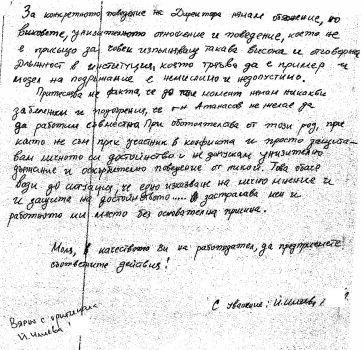 За конкретното поведение на Директора нямам обяснение, но
виковете, унизителното отношение и поведение, което не
е присъщо за човек изпълняващ такава висока и отговорна
длъжност в институция, която трябва да е пример и
модел на подражание е немислимо и недопустимо.
Притеснява ме факта, че до този момент нямам никакви
забележки и подозрения, че г-н Атанасов не желае да
да работим съвместно. При обстоятелства от този род, при
като не съм пряк участник в конфликта и просто защита-
вам името си достойнството и не допускам унизително
държание и оскърбително поведение от никого. Това обаче
води до ситуация, че едно изказване на лично мнение и
и защита на достойнството..... застрашава мен и
работното ми място без основателна причина.
Моля, в качеството Ви на работодател, да предприемете
съответните действия!
С уважение: Й. Илиева
Вярно с оригинала
Й. Илиева